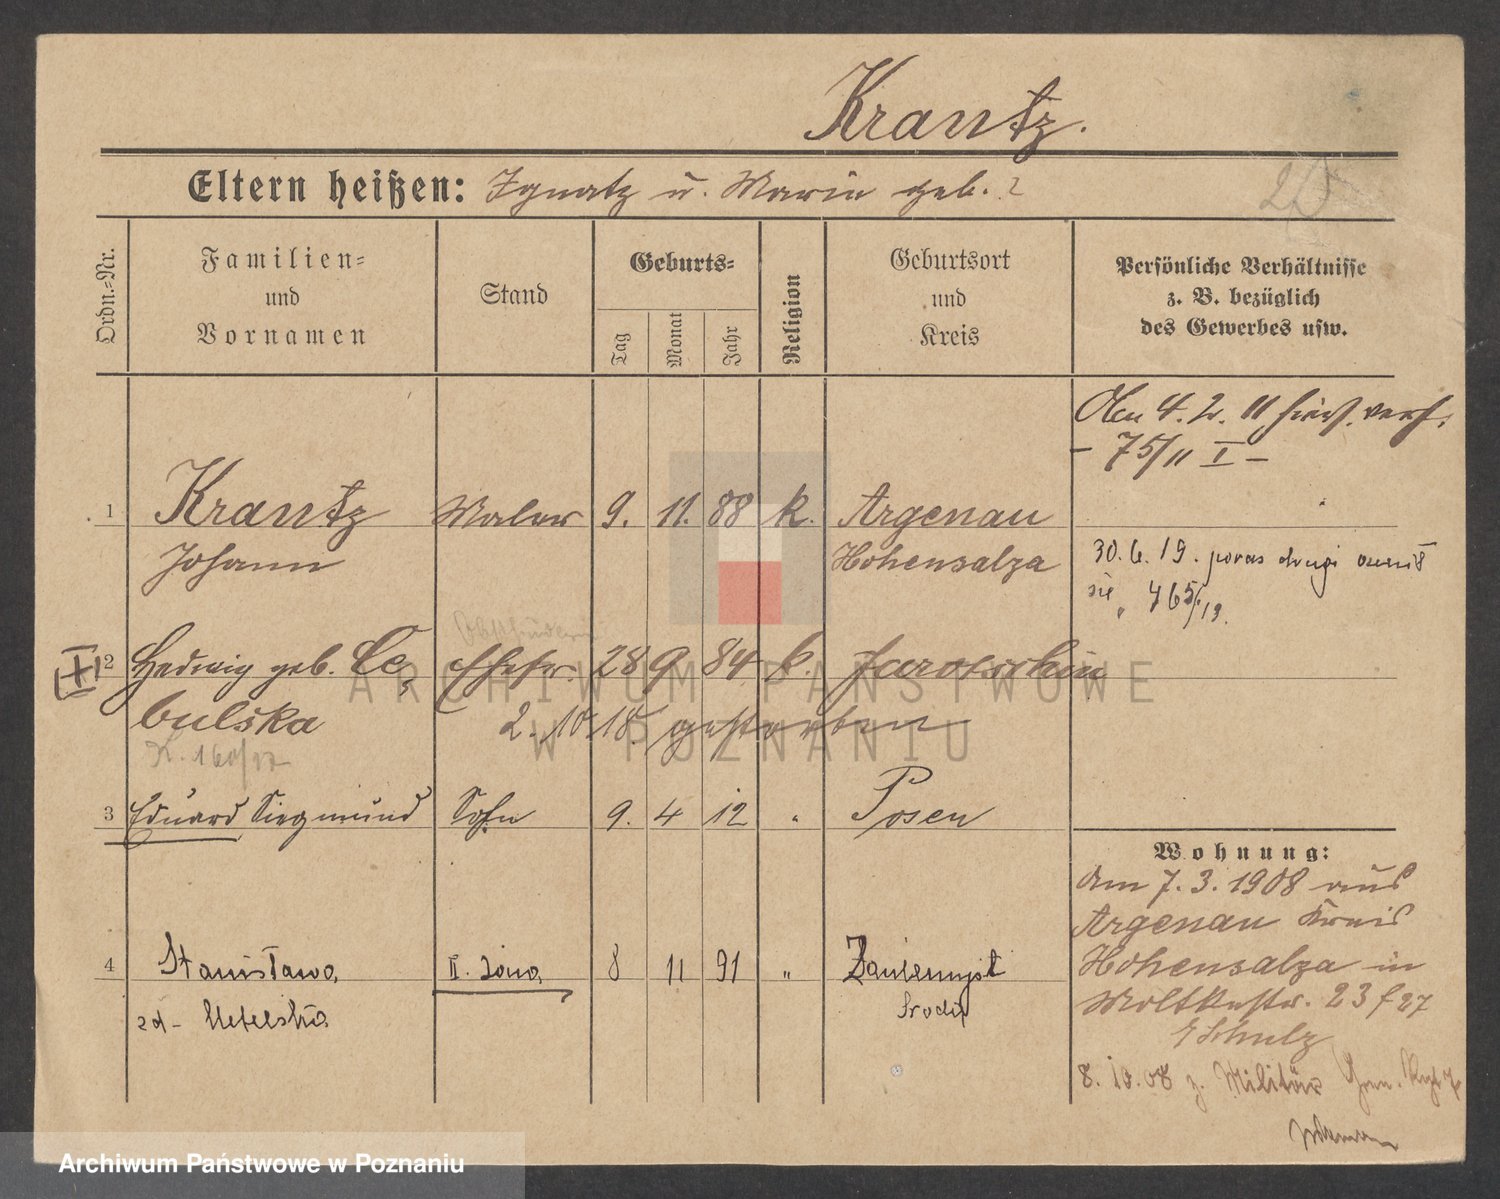 Krantz.
Eltern heißen: Ignatz u. Maria geb. ?
Ordn.-Nr.
Familien-
und
Vornamen
Stand
Geburts-
Tag
Monat
Jahr
Religion
Geburtsort
und
Kreis
Persönliche Verhältnisse
z. B. bezüglich
des Gewerbes usw.
Am 4. 2. 11 hier verh.
- 75/11 I -
1 Krantz Maler 9. 11. 88 k. Argenau
Johann Hohensalza
30. 6. 19. poraz drugi ożenił
się 465/19.
2 Hedwig geb. Ce- Ehefr. 28 9 84 k. Jarotschin
bulska 2. 10. 18. gestorben
3 Eduard Siegmund Sohn 9. 4 12 " Posen
4 Stanisława II. żona 8 11 91 " Zaniemyśl
zd- Środa
Wohnung:
Am 7. 3. 1908 aus
Argenau Kreis
Hohensalza in
Moltkestr. 23 f 27
Schulz
8. 10. 08 z. Militär Gren. Rgt.
ARCHIWUM PAŃSTWOWE
W POZNANIU
Archiwum Państwowe w Poznaniu